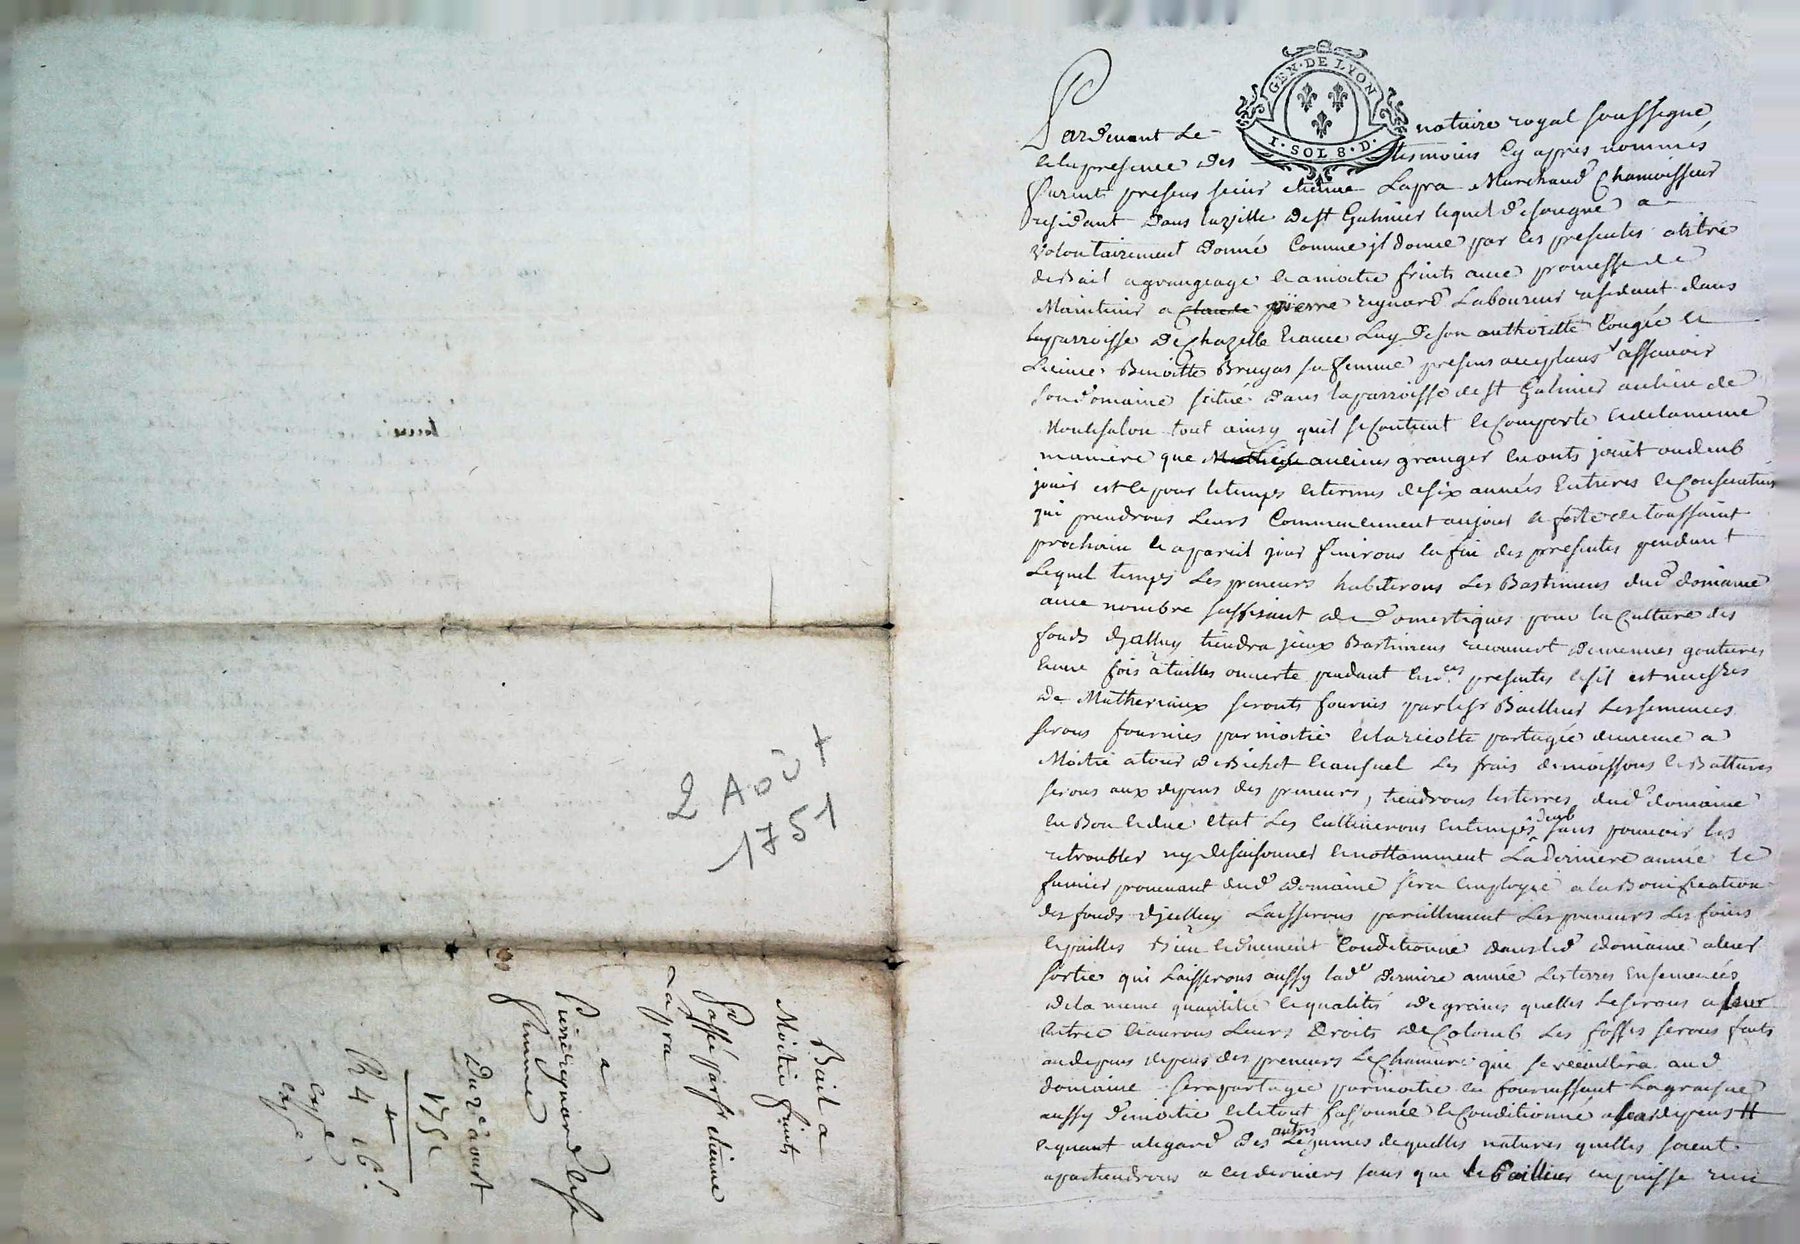 GEN · DE LYON
I · SOL 8 · D ·
Pardevant Le notaire royal soussigné
et en presence des tesmoins cy apres nommés
furent presens sieur etienne Lapra Marchand Chamoisseur
residant dans la ville de st Galmier lequel de son gré a
volontairement donné comme jl donne par les presentes a titre
de Bail a grangeage et a moitié fruits avec promesse de
Maintenir a pierre reynard Laboureur residant dans
la parroisse de Chazelle et avec Luy de son authorité congée et
Licence Benoitte Bruyas sa femme presens acceptans assavoir
son domaine scitué dans la parroisse de st Galmier au lieu de
Montsalon tout ainsy quil se contient et comporte et de la meme
maniere que anciens granger en ont jouit ou deub
jouir est ce pour le temps et terme de six années entieres et consecutives
qui prendrons Leurs Commencement au jour et feste de toussaint
prochain et a pareil jour finirons la fin des presentes pendant
Lequel temps Les preneurs habiterons Les Bastimens dud domaine
avec nombre suffisant de domestiques pour la Culture des
fonds djcelluy tiendra jceux Bastimens recouvert de menues goutieres
et une fois a tailles ouverte pendant lesd. presentes et sil est necessres
de Matheriaux seronts fournis par le sr Bailleur Les semences
serons fournies par moitié et la recolte partagée de meme a
Moitié a tour de Bichet et au suel Les frais de moissons et Battures
serons aux depens des preneurs, tiendrons les terres dud domaine
en Bon et due etat Les cultiverons en temps deub sans pouvoir les
retroubler ny desaisonner et nottamment La derniere année le
fumier provenant dud domaine sera employé a la Bonification
des fonds djcelluy Laisserons pareillement Les preneurs Les foins
et pailles Bien et duement Conditionné dans led domaine a leur
sortie qui Laisserons aussy lade derniere année Les terres ensemencées
de la meme quantité et qualités de grains quelles le serons a leur
entrée et aurons Leurs Droits de Colomb Les fossés serons faits
aux depens des preneurs Le Chanvre qui se receuillira aud
domaine sera partagée par moitié en fournissant La graisne
aussy de moitié et le tout fassonnée et Conditionné a leur depens
et quant a legard des autres Legumes de quelles natures quelles soient
apartiendrons a ces derniers sans que le bailleur en puisse rien
2 Août
1751
Bail a
Moitié fruits
Passé par sr etienne
Lapra
a
Pierre reynard et sa
femme
Du 2e aoust
1751